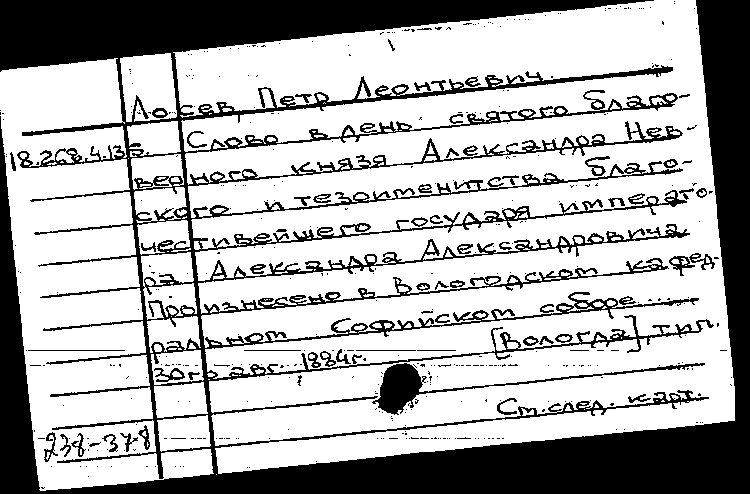 Лосев, Петр Леонтьевич.
18.268.4.135. Слово в день святого благо-
верного князя Александра Нев-
ского и тезоименитства благо-
честивейшего государя императо-
ра Александра Александровича
Произнесено в Вологодском кафед-
ральном Софийском соборе
30го авг. 1884г. [Вологда], тип.
См. след. карт.
238-378